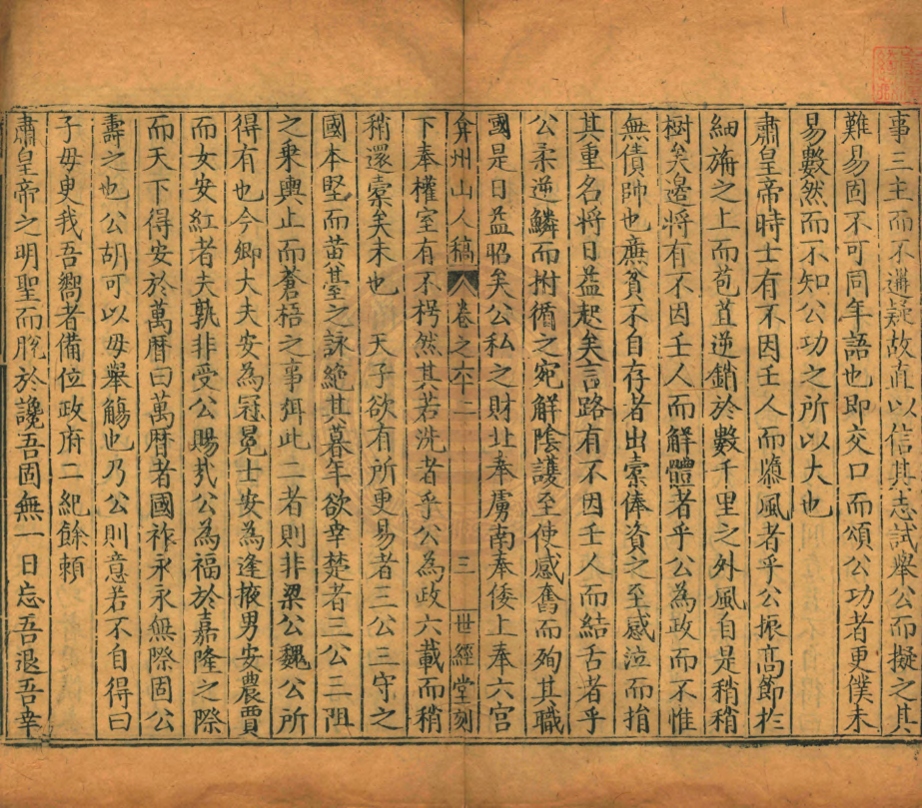 事三主而不遘疑故直以信其志試舉公而擬之其
難易固不可同年語也即交口而頌公功者更僕未
易數然而不知公功之所以大也
肅皇帝時士有不因壬人而靡風者乎公振高節於
細旃之上而苞苴逆銷於數千里之外風自是稍稍
樹矣邉將有不因壬人而解體者乎公為政而不惟
無債帥也廡貧不自存者出橐俸資之至感泣而捐
其重名將日益起矣言路有不因壬人而結舌者乎
公柔逆鱗而拊循之宛解陰護至使感奮而殉其職
國是日益昭矣公私之財北奉虜南奉倭上奉六宮
弇州山人稿 卷之六十二 三 世經堂刻
下奉權室有不枵然其若洗者乎公為政六載而稍
稍還橐矣未也 天子欲有所更易者三公三守之
國本堅而苗臺之詠絶其暮年欲幸楚者三公三阻
之乗輿止而蒼梧之事弭此二者則非梁公魏公所
得有也今卿大夫安為冠冕士安為逢掖男安農賈
而女安紅者夫孰非受公賜哉公為福於嘉隆之際
而天下得安於萬曆曰萬曆者國祚永永無際固公
壽之也公胡可以毋舉觴也乃公則意若不自得曰
子毋更我吾嚮者備位政府二紀餘頼
肅皇帝之明聖而脫於讒吾固無一日忘吾退吾幸